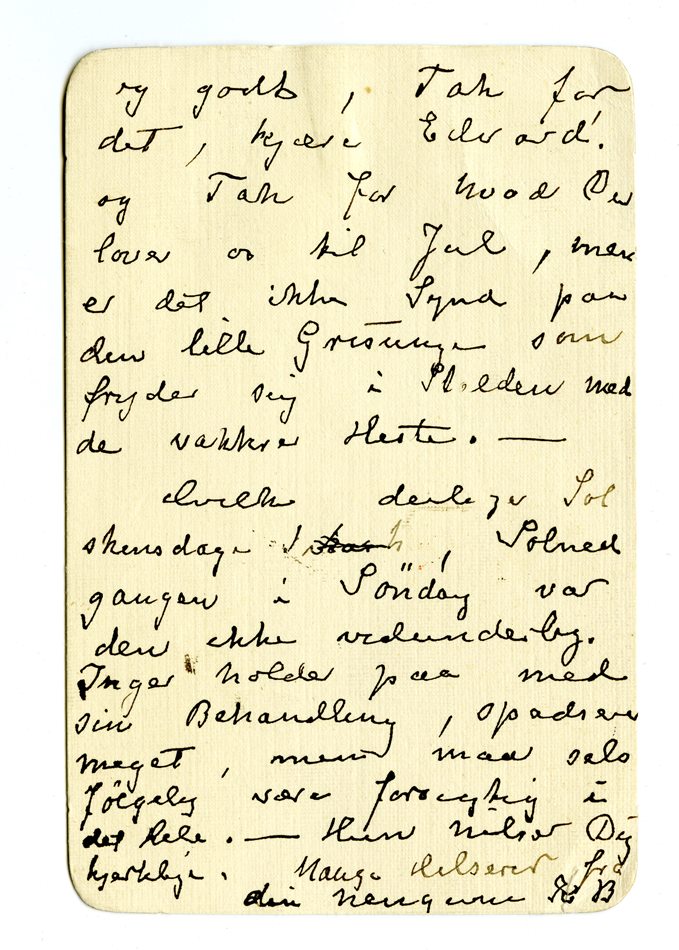 og godt, Tak for
det, kjære Edvard!
og Tak for hvad Du
lover os til Jul, men
er det ikke Synd paa
den lille Grisunge som
fryder sig i Stalden med
de vakkre Heste. —
Hvilke deilige Sol
skinsdage, Solned
gangen i Söndag var
den ikke vidunderlig.
Inger holder paa med
sin Behandling, spadserer
meget, men maa selv
fölgelig være forsigtig i
det hele. — Hun hilser Dig
hjerteligt. Mange Hilsener fra
din hengivne B